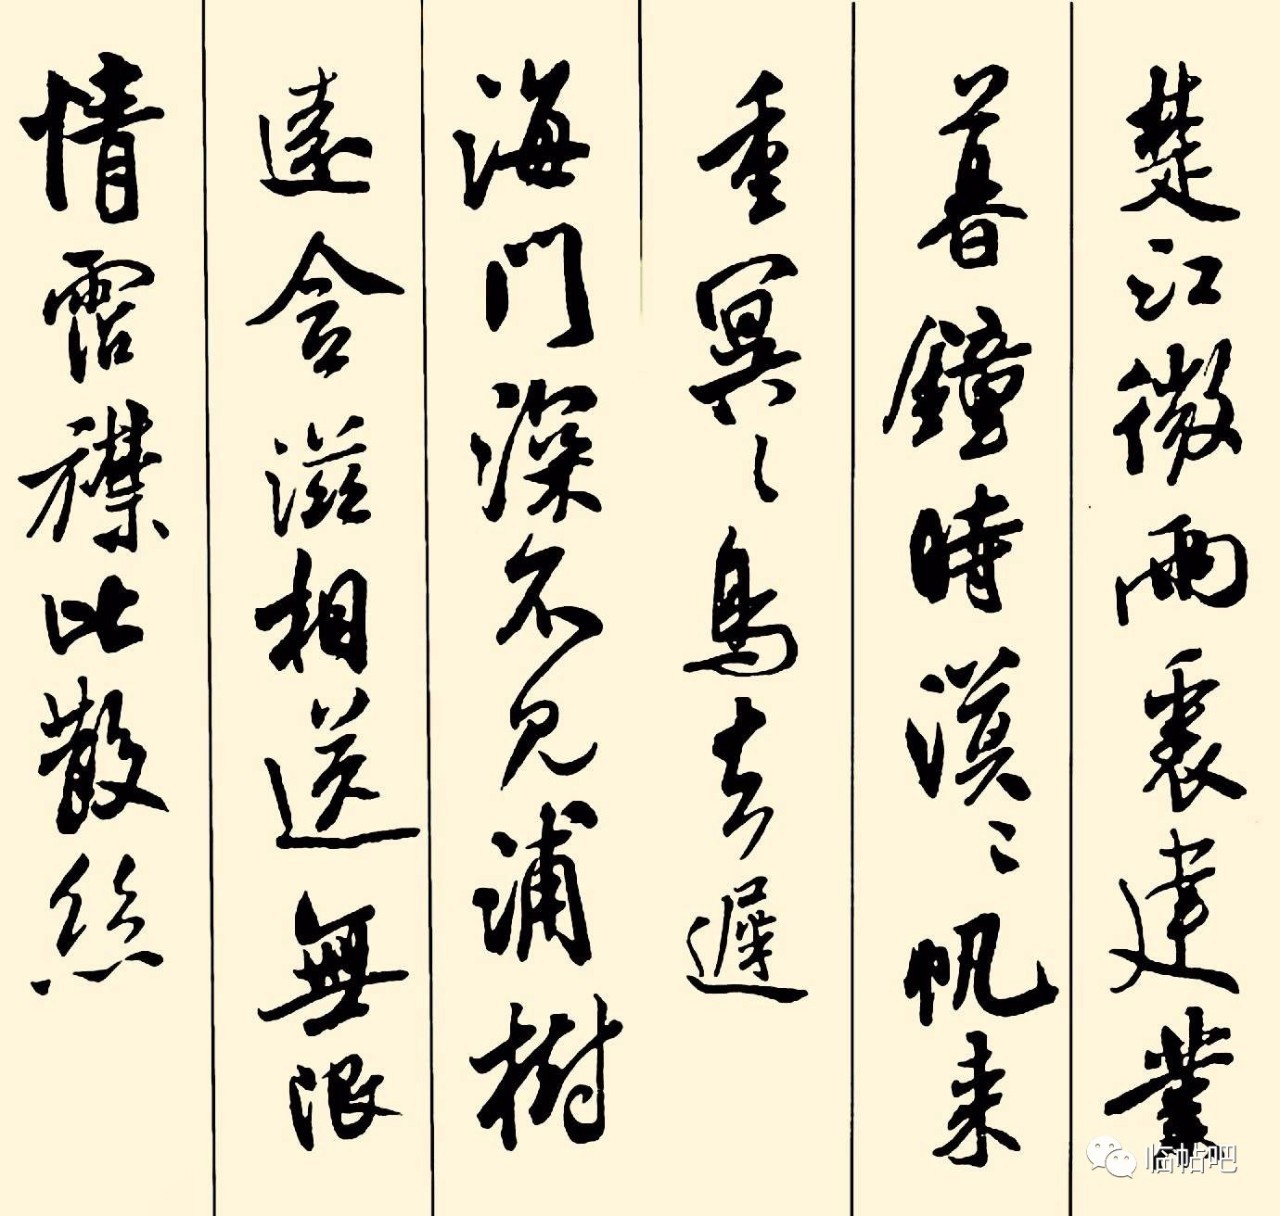 楚江微雨裏建業
暮鐘時漠〻帆来
重冥〻鳥去遲
海門深不見浦樹
遠含滋相送無限
情霑襟比散絲
临帖吧